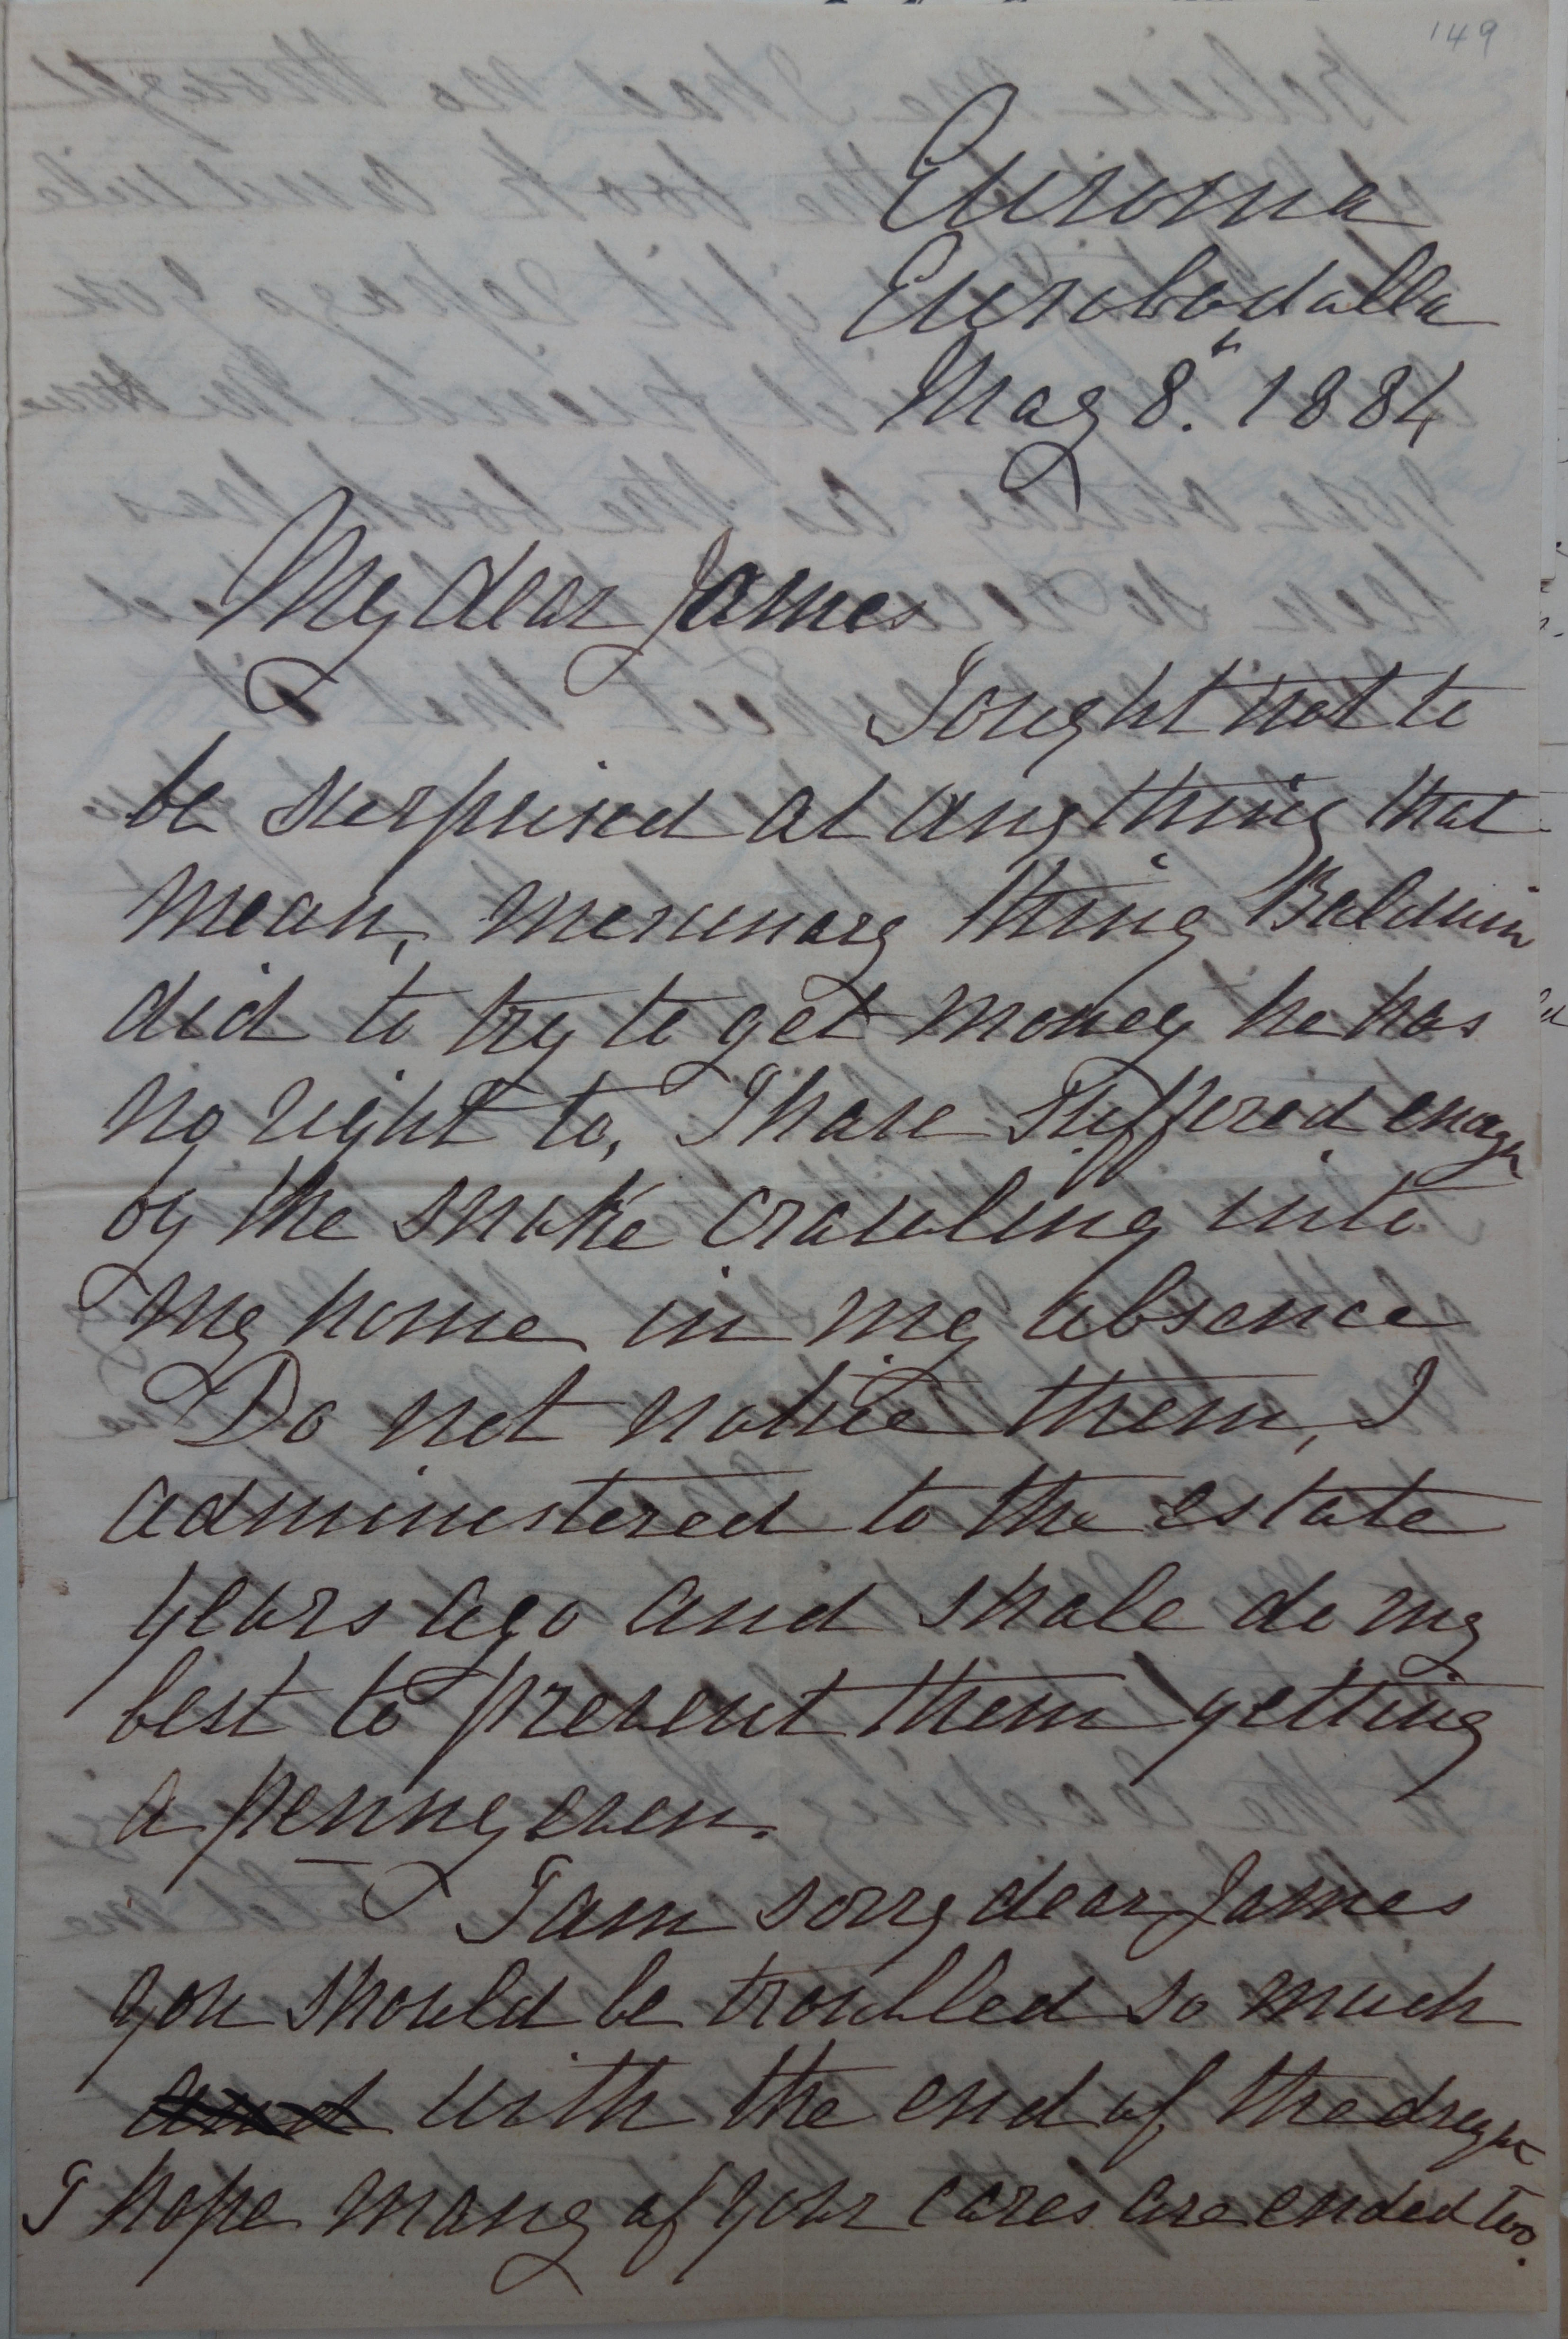 149
Euroma
Eurobodalla
May 8th. 1884
My dear James
I ought not to
be surprised at anything that
mean, mercenary thing Baldwin
did to try to get money he has
no right to, I have suffered enough
by the snake crawling into
my home in my absence
Do not notice them, I
administered to the estate
years ago and shale do my
best to prevent them getting
a penny even.
I am sorry dear James
you should be troubled so much
and with the end of the
I hope many of your cares are ended too.